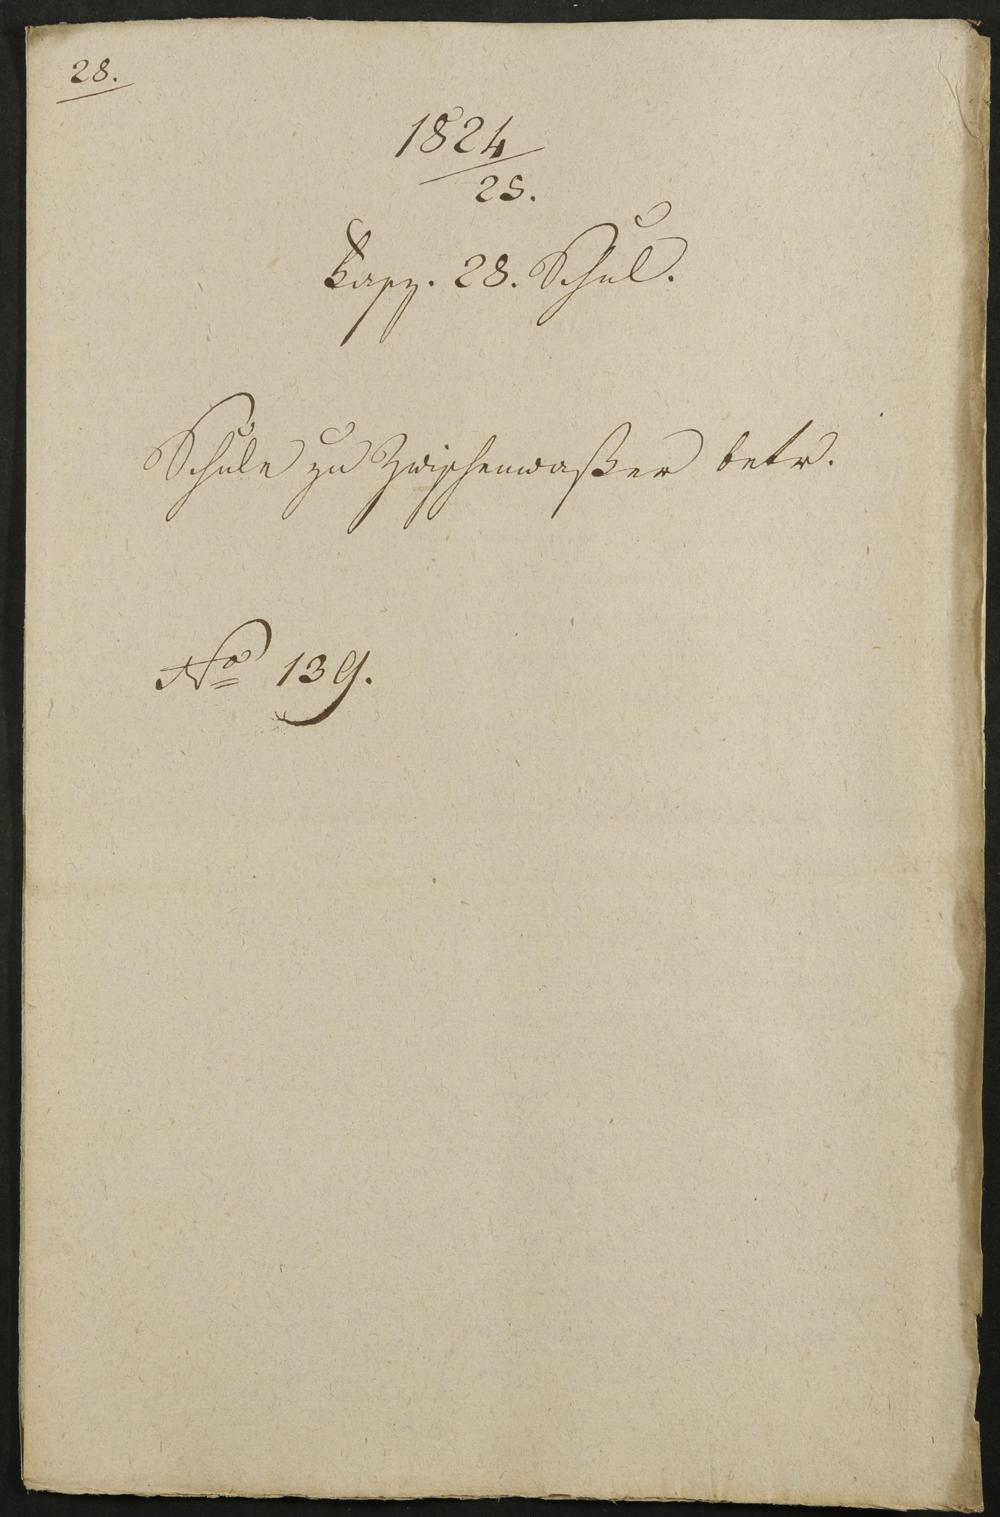 28.
1824
25.
Kapz. 28. Schul.
Schule zu Zwischenwaßer betr.
No 139.